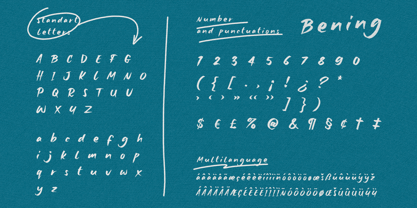 Standart
Letters
A B C D E F G
H I J K L M N O
P Q R S T U V
W X Y Z
a b c d e f g h
i j k l m n o p
q r s t u v w x
y z
Number
and punctuations
Bening
1 2 3 4 5 6 7 8 9 0
( { [ . , ¡ ! ¿ ? *
] } )
$ € £ % @ & ¶ § ¢ † ‡
Multilanguage